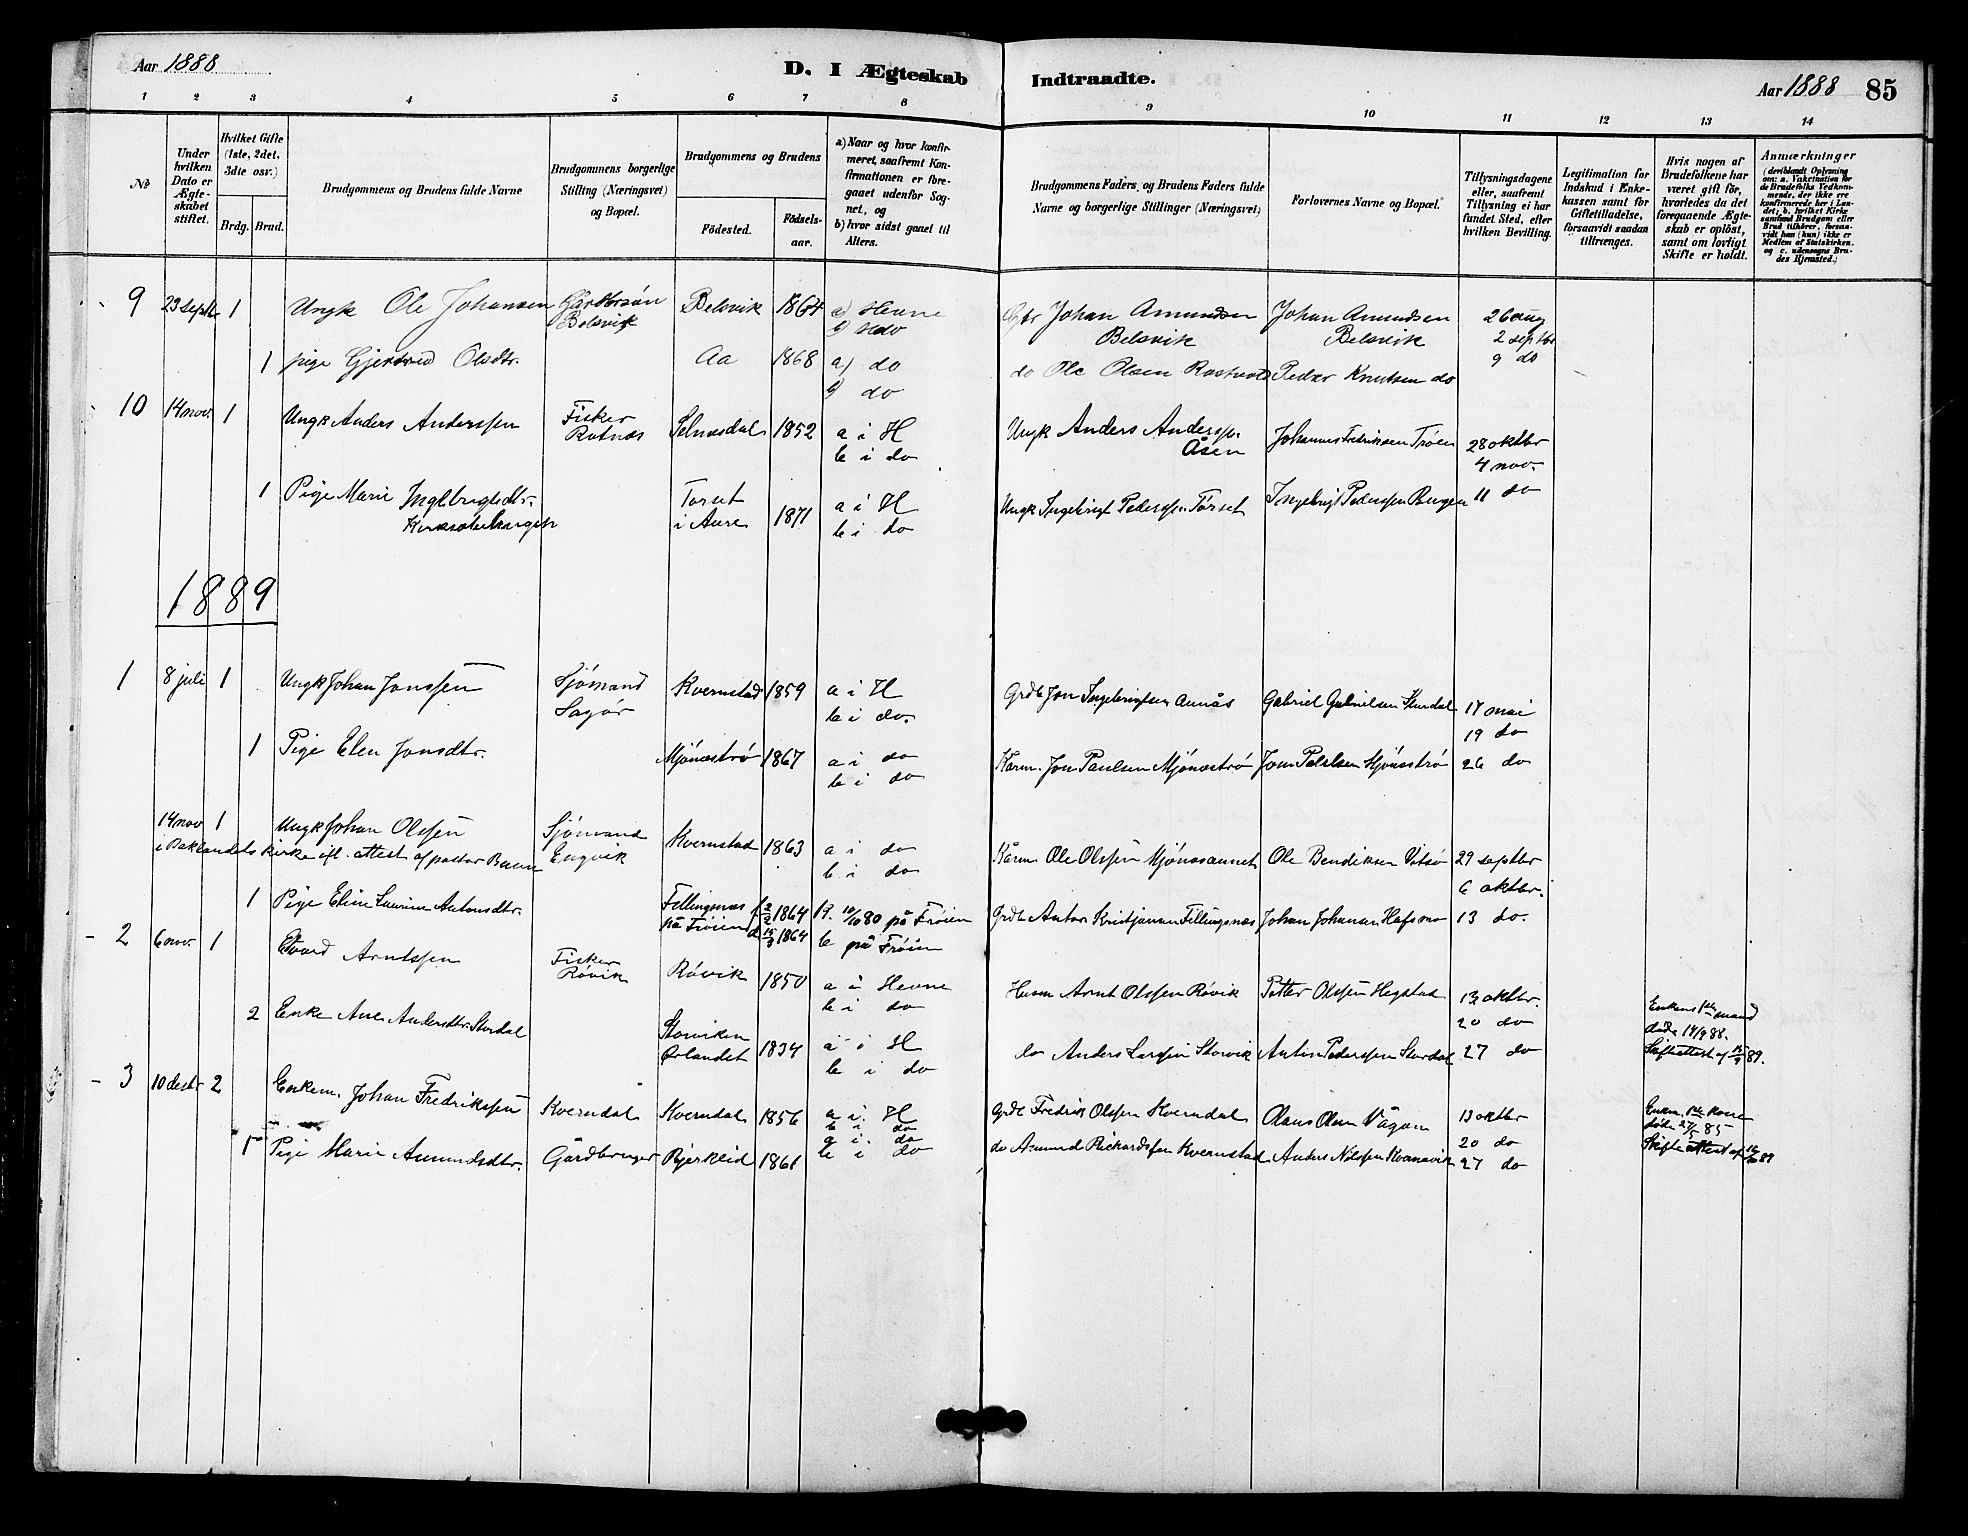 Aar 1888
D. I Ægteskab
Indtraadte.
Aar 1888 85
1 2 3 4 5 6 7 8
9 10 11 12 13 14
№
Under hvilken Dato er Ægteskabet stiftet.
Hvilket Gifte (1ste, 2det, 3die osv.)
Brdg. Brud.
Brudgommens og Brudens fulde Navne
Brudgommens borgerlige Stilling (Næringsvei) og Bopæl.
Brudgommens og Brudens
Födested.
Födselsaar.
a) Naar og hvor konfirmeret, saafremt Konfirmationen er foregaaet udenför Sognet, og
b) hvor sidst gaaet til Alters.
Brudgommens Faders, og Brudens Faders fulde Navne og borgerlige Stillinger (Næringsvei)
Forlovernes Navne og Bopæl.
Tillysningsdagene eller, saafremt Tillysning ei har fundet Sted, efter hvilken Bevilling.
Legitimation for Indskud i Enkekassen samt för Giftetilladelse, forsaavidt saadan tiltrænges.
Hvis nogen af Brudefolkene har været gift för, hvorledes da det foregaaende Ægteskab er oplöst, samt om lovligt Skifte er holdt.
Anmærkninger (deriblandt Oplysning om: a. Vakcination for de Brudefolks Vedkommende, der ikke ere konfirmerede her i Landet, b. hvilket Kirkesamfund Brudgom eller Brud tilhörer, forsaavidt han (hun) ikke er Medlem af Statskirken, og c. udensogns Brudes Hjemsted.)
9 23 septbr 1 Ungk Ole Johansen Gårdbrsøn Belsvik Belsvik 1864 a) Hevne b) do
Gbr Johan Amundsen Belsvik Johan Amundsen Belsvik 26 aug 2 septbr 9 do
1 pige Gjertrud Olsdtr. Aa 1868 a) do b) do
do Ole Olsen Peder Knutsen do
10 14 nov. 1 Ungk Anders Anderssen Fisker Rotnæs Selnæsdal 1852 a i H b i do
Ungk Anders Anderssen Åsen Johannes Fredriksen Trøen 28 oktbr 4 nov. 11 do
1 Pige Marie Ingebrigtsdtr. Torset i Aure 1871 a i H b i do
Ungk Ingebrigt Pederssen Tørset Ingebrigt Pederssen Bergen
1889
1 8 juli 1 Ungk Johan Jonssen Sjømand Sagør Kvernstad 1859 a i H b i do.
Grdb Jon Ingebrigtsen Aunås Gabriel Gabrielsen Stordal 17 mai 19 do 26 do
1 Pige Elen Jonsdtr. Mjønæstrø 1867 a i do b i do
Kårm. Jon Paulsen Mjønæstrø Jon Mjønæstrø
14 nov 1 Ungk Johan Olssen Sjømand Engvik Kvernstad 1863 a i do b i do
i Baklandets kirke ifl. attest af pastor
Kårm Ole Olssen Mjønessaunet Ole Bendiksen Vitsø 29 septbr 6 oktbr. 13 do.
1 Pige Eline Laurine Antonsdtr. Fillingsnæs på Frøien f 2/2 1864 d 15/3 1864 k. 10/10 80 på Frøien b på Frøien
Grdb Anton Kristjansen Fillingsnæs Johan Johansen
2 6 nov. 1 Edvard Arntssen Fisker Røvik Røvik 1850 a i Hevne b i do
Husm Arnt Olssen Røvik Petter Olssen Hegstad 13 oktbr. 20 do 27 do
2 Enke Ane Andersdtr. Stordal Storviken Ørlandet 1834 a i H b i do
do Anders Larssen Storvik Anton Pederssen Stordal
Enkens 1ste mand døde 14/9 88. Skifteattest af 12/9 89.
3 10 decbr 2 Enkem. Johan Fredrikssen Kverndal Kverndal 1856 a i. H b i do
Grdb Fredrik Olssen Kverndal Olaus Olsen Vågan 13 oktbr 20 do 27 do
1 Pige Marie Amundsdtr. Gårdbruger Bjerkleid 1861 a i. do b i do
do Amund Rickardssen Kvernstad Anders Nilssen Kvernavik
Enkm. 1ste Kone døde 27/5 85 Skifteattest af 89